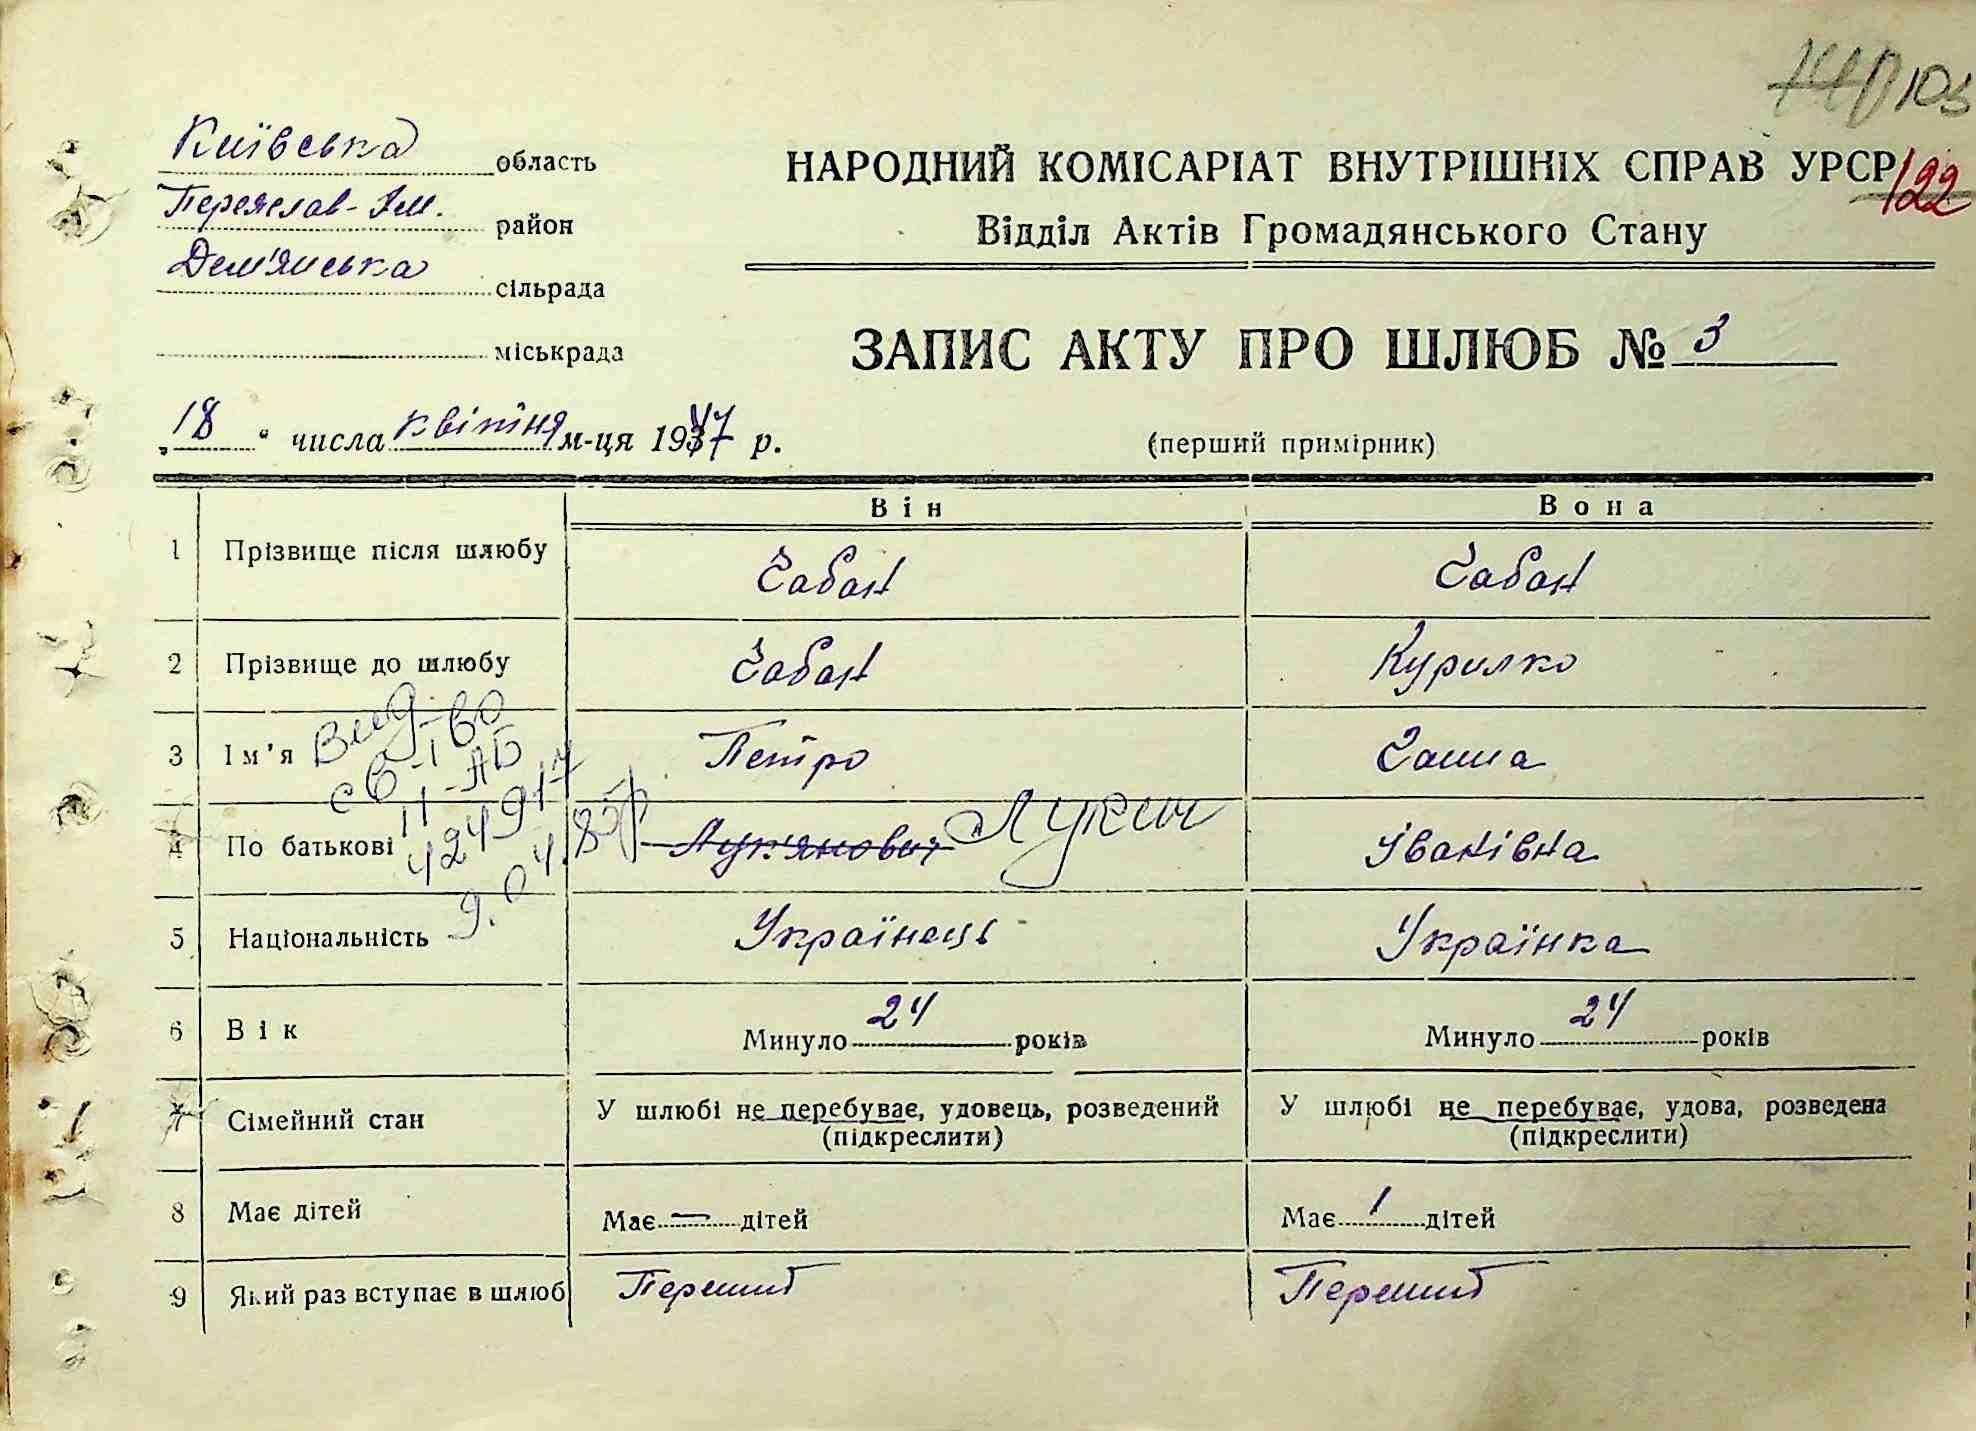 103
122
Київська область
Переяслав-Хм. район
Дем'янська сільрада
міськрада
НАРОДНИЙ КОМІСАРІАТ ВНУТРІШНІХ СПРАВ УРСР
Відділ Актів Громадянського Стану
ЗАПИС АКТУ ПРО ШЛЮБ № 3
„18“ числа квітня м-ця 1947 р.
(перший примірник)
Він Вона
1 Прізвище після шлюбу Чабан Чабан
2 Прізвище до шлюбу Чабан Курилко
3 Ім'я Петро Ганна
4 По батькові Лук'янович Лукич Іванівна
Вид-во
св-во
II-АБ
424917
9.04.85р
5 Національність Українець Українка
6 Вік Минуло 24 років Минуло 24 років
7 Сімейний стан У шлюбі не перебуває, удовець, розведений У шлюбі не перебуває, удова, розведена
(підкреслити) (підкреслити)
8 Має дітей Має — дітей Має 1 дітей
9 Який раз вступає в шлюб Перший Перший